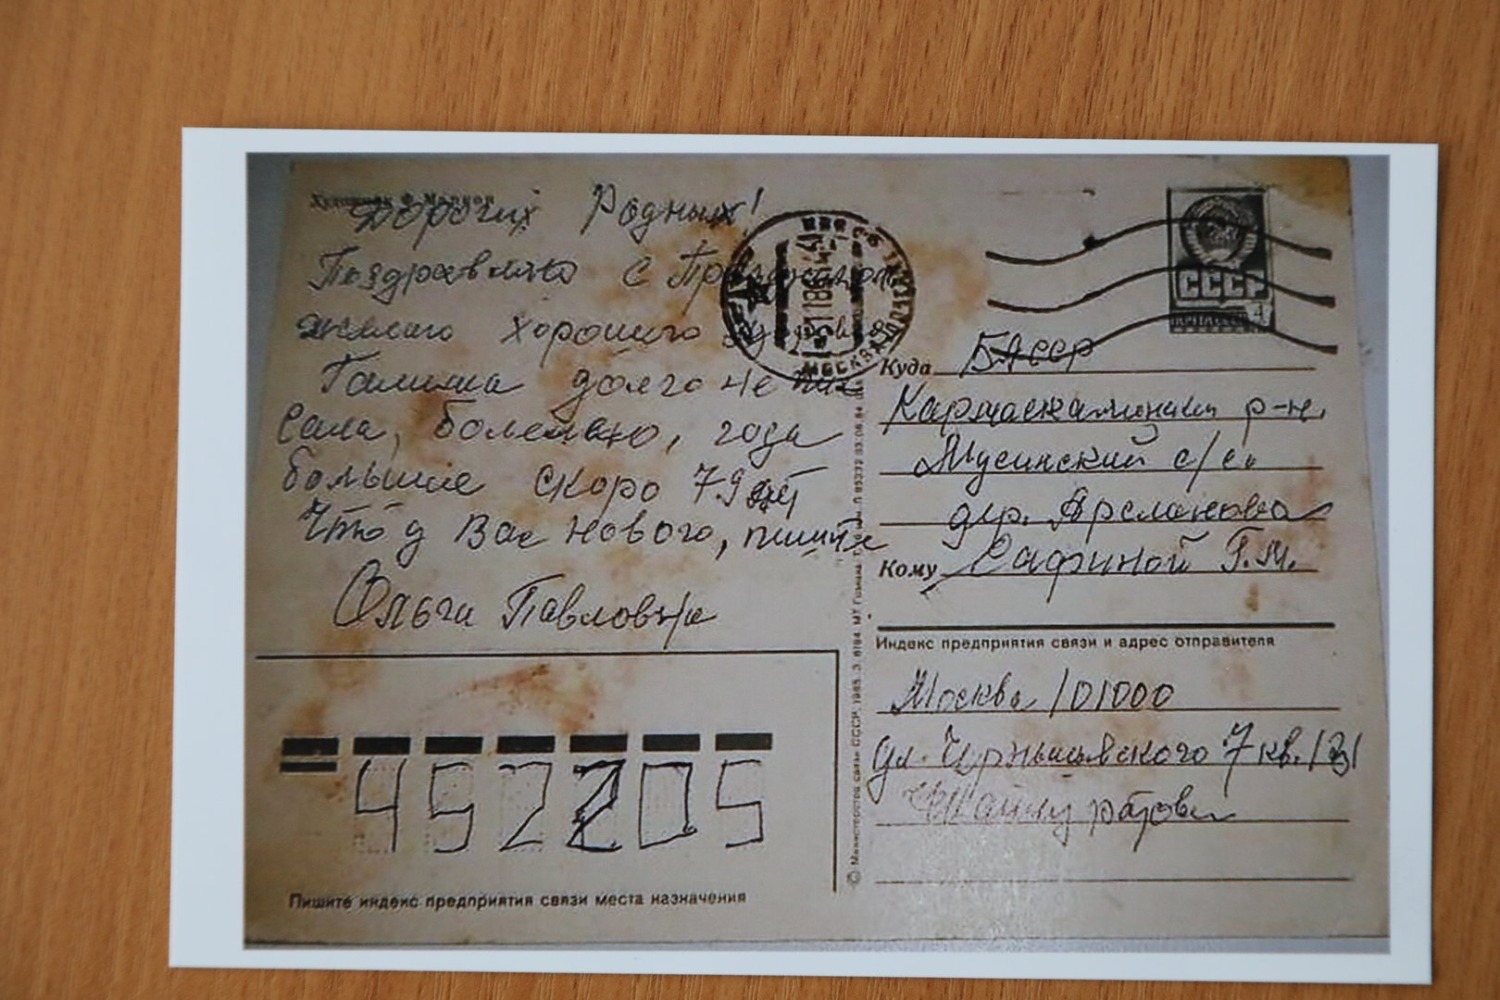 Художник Ф. Марков
Дорогих Родных!
Поздравляю с Праздником
желаю хорошего здоровья
Галима долго не пи
сала, болею, года
большие скоро 79 лет
Что у Вас нового, пишите
Ольга Павловна
452205
Пишите индекс предприятия связи места назначения
МОСКВА
СССР
ПОЧТА СССР
4
Куда БАССР
Кармаскалинский р-н,
Мусинский с/с.
дер. Арсланово
Кому Сафиной Г.М.
Индекс предприятия связи и адрес отправителя
Москва 101000
ул. Чернышевского 7 кв. 131
© Министерство связи СССР. 1985. З. 6184. МТ Гознака.